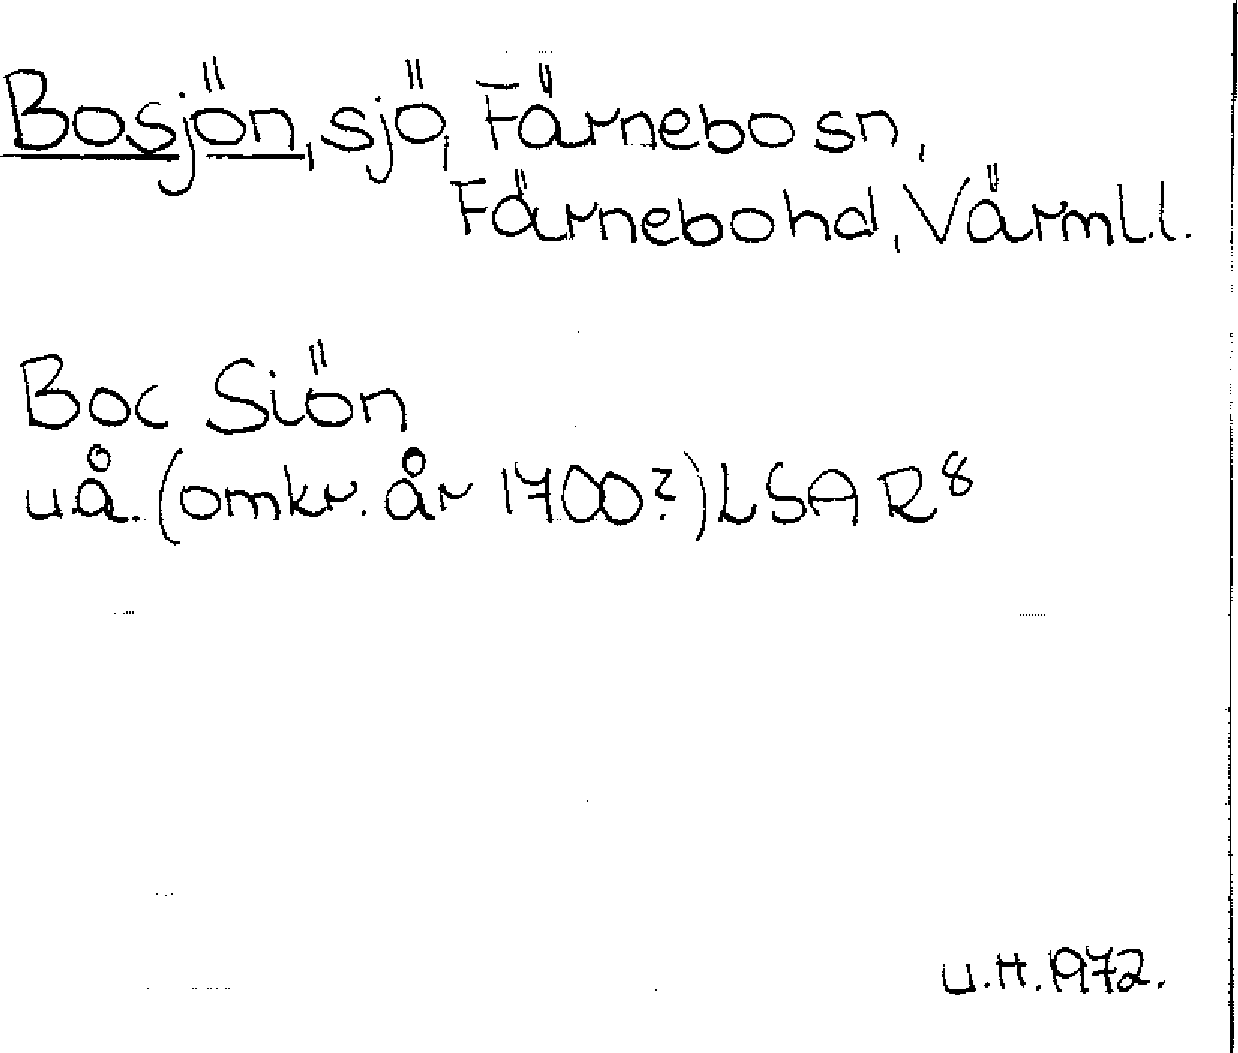 Bosjön, sjö, Färnebo sn,
Färnebo hd, Värml.l.
Boc Siön
u.å. (omkr. år 1700?) LSA R⁸
U.H. 1972.